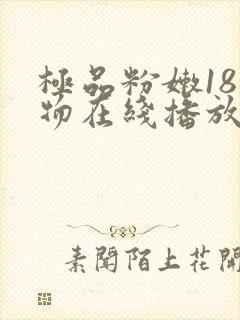 極品粉嫩18
物在綫播放
素聞陌上花開